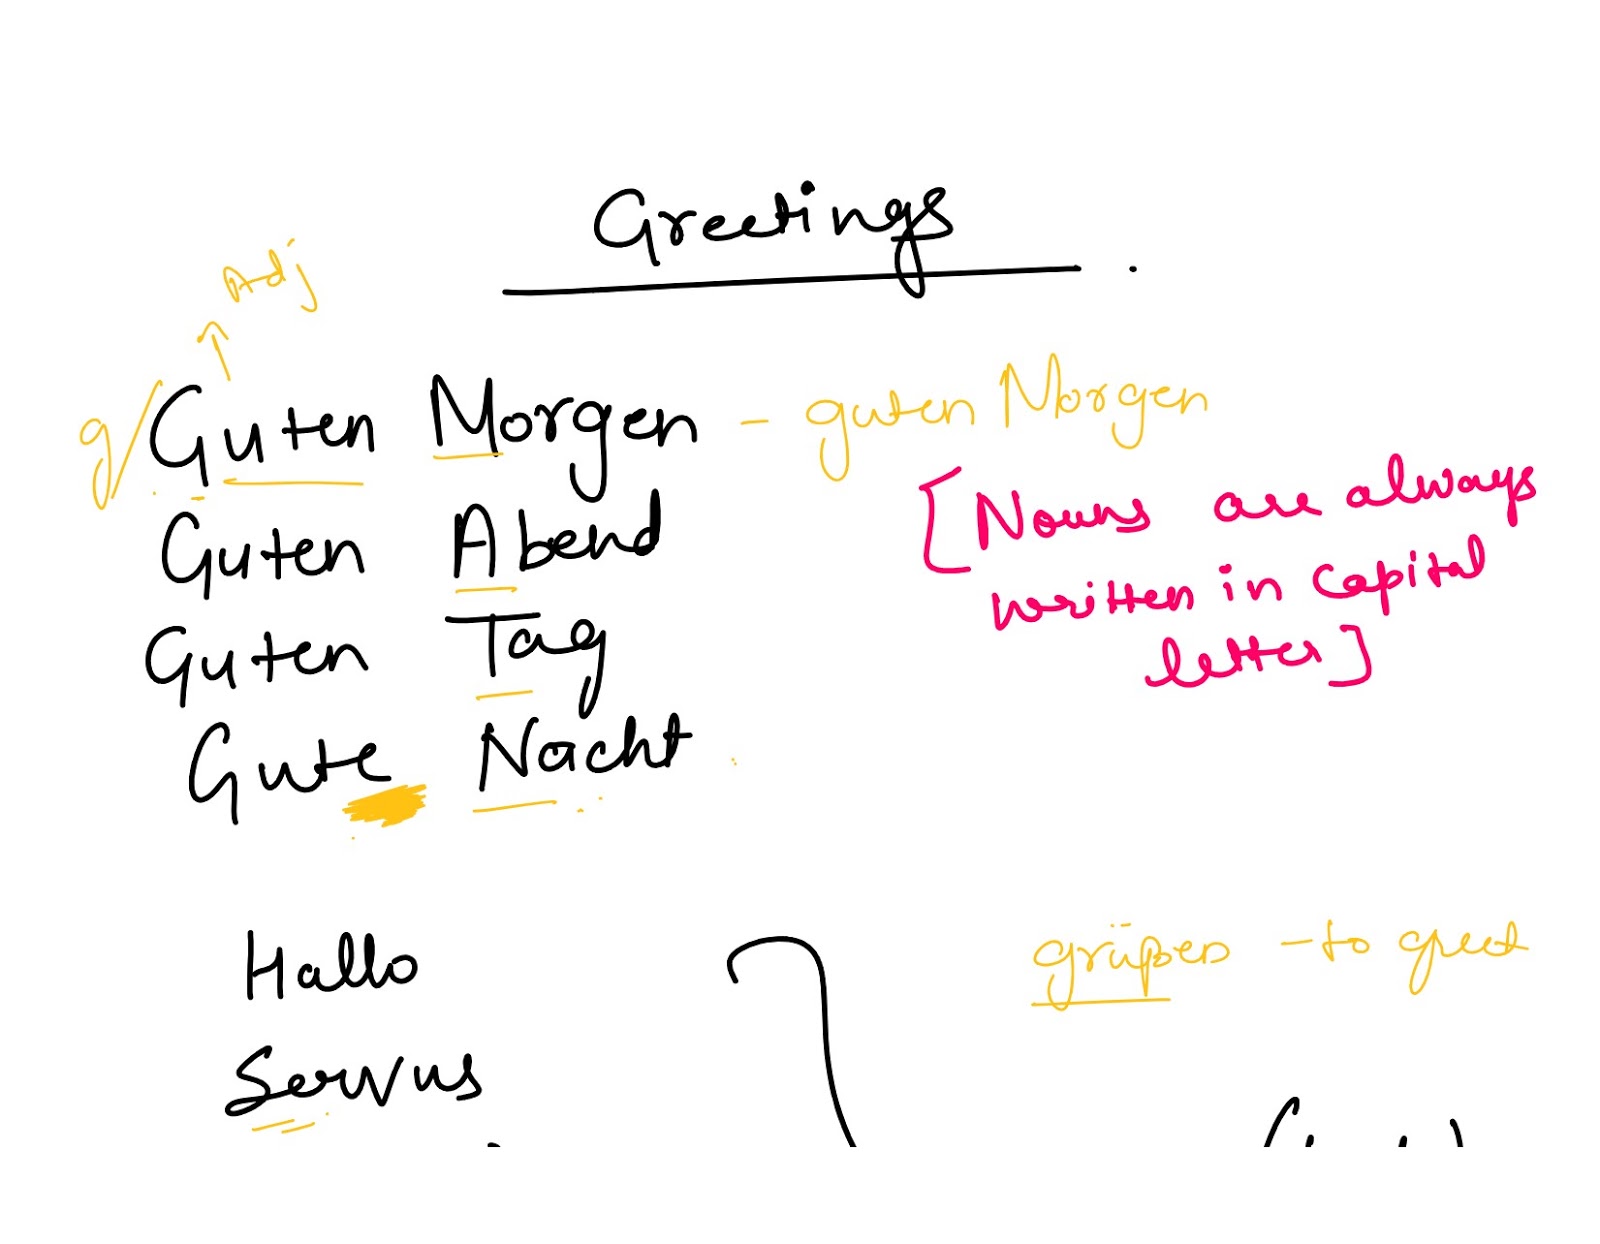 Greetings
Adj
g/Guten Morgen - guten Morgen
Guten Abend
[Nouns are always
written in capital
letter]
Guten Tag
Gute Nacht
Hallo
grüßen - to greet
Servus